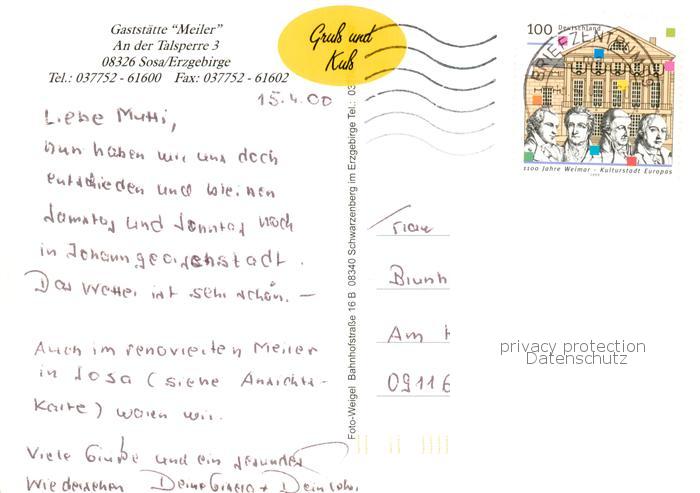 Gaststätte “Meiler”
An der Talsperre 3
08326 Sosa/Erzgebirge
Tel.: 037752 - 61600 Fax: 037752 - 61602
Gruß und
Kuß
15.4.00
Liebe Mutti,
nun haben wir uns doch
entschieden und bleiben
Samstag und Sonntag noch
in Johanngeorgenstadt.
Das Wetter ist sehr schön. —
Auch im renovierten Meiler
in Sosa (siehe Ansichts-
Karte) waren wir.
Viele Grüße und ein gesundes
Wiedersehen Deine +
Foto-Weigel Bahnhofstraße 16 B 08340 Schwarzenberg im Erzgebirge Tel.: 03
100 Deutschland
BRIEFZENTRUM
1100 Jahre Weimar - Kulturstadt Europas
1999
Frau
Brunh
Am
09116
privacy protection
Datenschutz